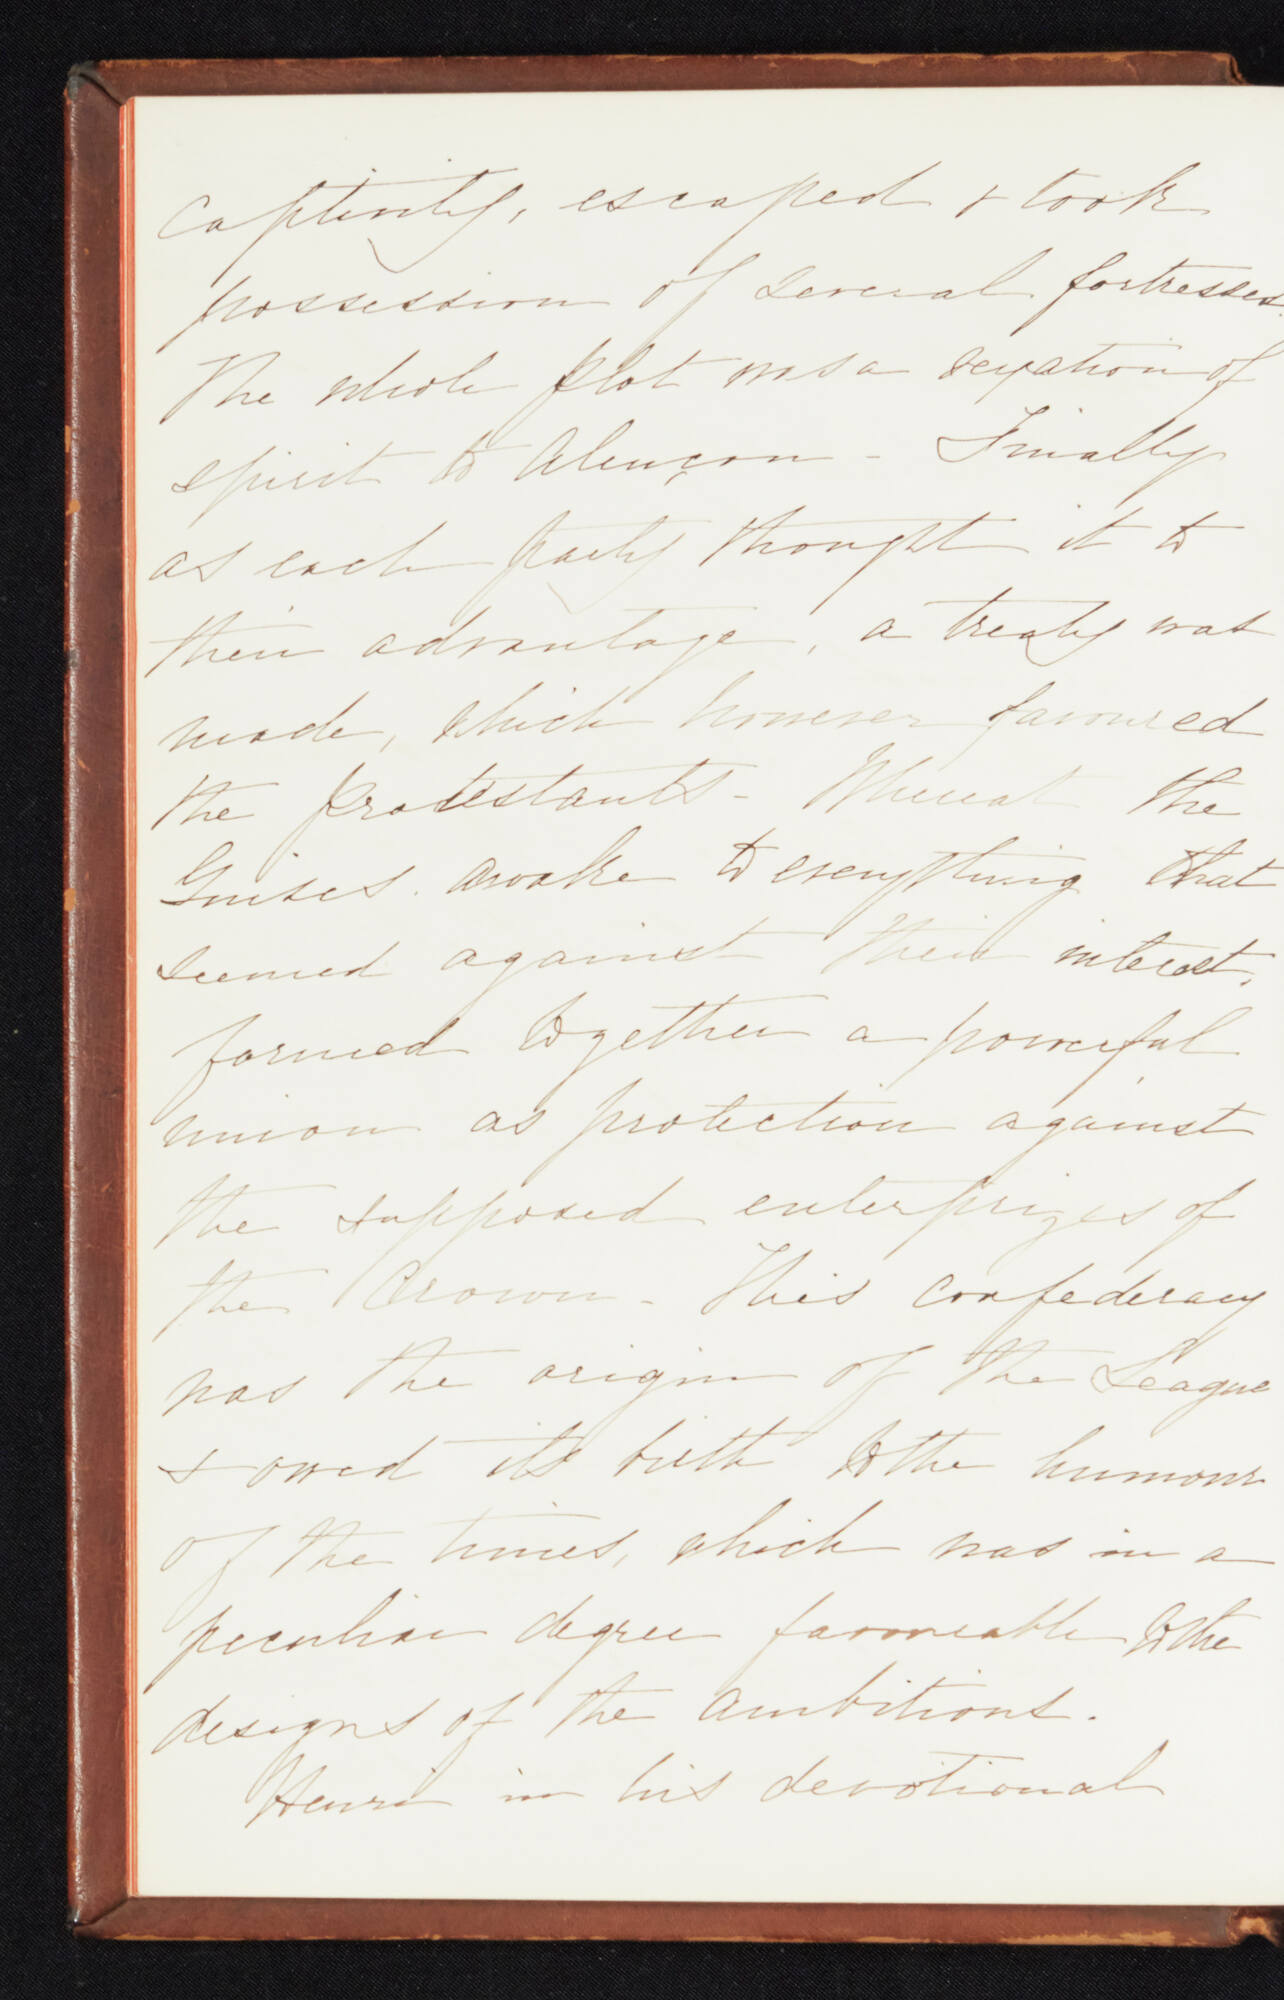 captivity, escaped & took
possession of several fortresses.
The whole plot was a vexation of
spirit to Alençon - Finally
as each party thought it to
their advantage, a treaty was
made, which however favoured
the Protestants - Whereat the
Guises awoke to everything that
seemed against their interest,
formed together a powerful
union as protection against
the supposed enterprizes of
the Crown - This confederacy
was the origin of the League
& owed its birth to the humour
of the times, which was in a
peculiar degree favourable to the
designs of the ambitious.
Henri in his devotional